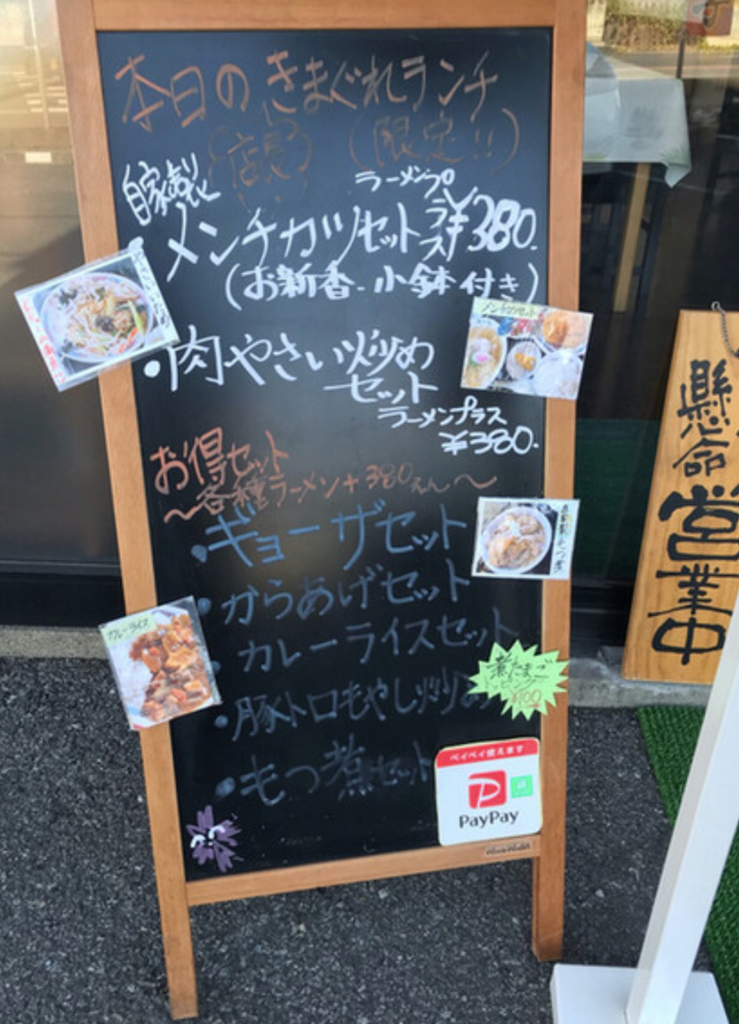 本日のきまぐれランチ
(店長) (限定!!)
自家製
メンチカツセット
ラーメンプラス¥380.
(お新香・小鉢付き)
・肉やさい炒め
セット
ラーメンプラス
¥380.
お得セット
〜各種ラーメン+380えん〜
・ギョーザセット
・からあげセット
・カレーライスセット
・豚トロもやし炒め
・もつ煮セット
メンチカツセット
自家製もつ煮
カレーライス
煮たまご
トッピング
¥100
ペイペイ使えます
PayPay
懸命
営業中